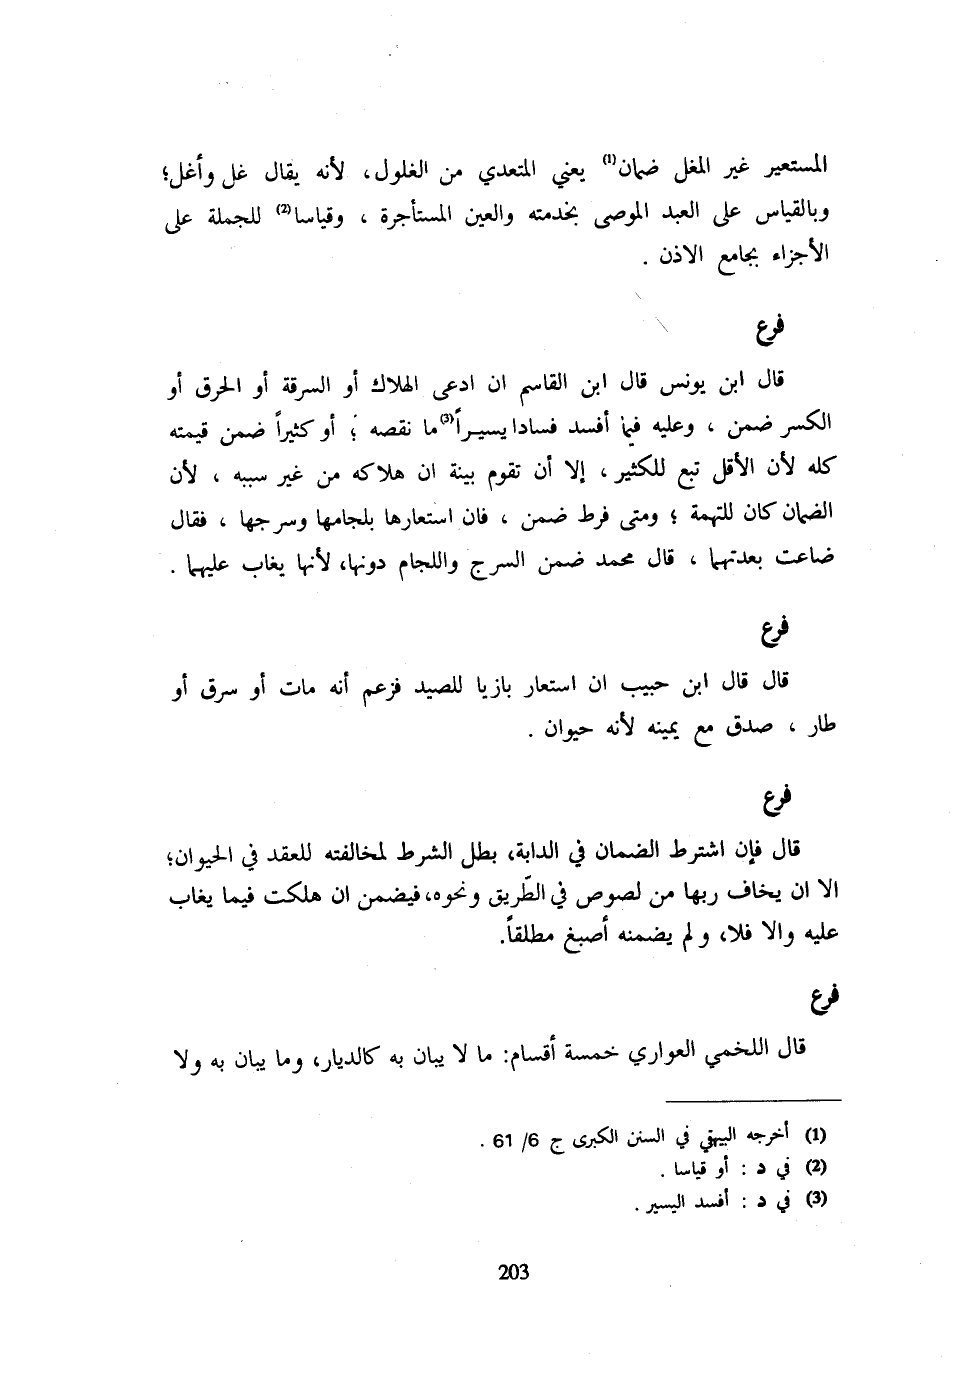 المستعير غير المغل ضمان(1) يعني المتعدي من الغلول، لأنه يقال غل وأغل؛
وبالقياس على العبد الموصى بخدمته والعين المستأجرة ، وقياسا(2) للجملة على
الأجزاء بجامع الاذن .
فرع
قال ابن يونس قال ابن القاسم ان ادعى الهلاك أو السرقة أو الحرق أو
الكسر ضمن ، وعليه فيما أفسد فسادا يسيراً(3) ما نقصه ؛ أو كثيراً ضمن قيمته
كله لأن الأقل تبع للكثير ، إلا أن تقوم بينة ان هلاكه من غير سببه ، لأن
الضمان كان للتهمة ؛ ومتى فرط ضمن ، فان استعارها بلجامها وسرجها ، فقال
ضاعت بعدتهما ، قال محمد ضمن السرج واللجام دونها، لأنها يغاب عليهما .
فرع
قال قال ابن حبيب ان استعار بازيا للصيد فزعم أنه مات أو سرق أو
طار ، صدق مع يمينه لأنه حيوان .
فرع
قال فإن اشترط الضمان في الدابة، بطل الشرط لمخالفته للعقد في الحيوان؛
الا ان يخاف ربها من لصوص في الطّريق ونحوه، فيضمن ان هلكت فيما يغاب
عليه والا فلا، ولم يضمنه أصبغ مطلقاً.
فرع
قال اللخمي العواري خمسة أقسام: ما لا يبان به كالديار، وما يبان به ولا
(1) أخرجه البيهقي في السنن الكبرى ج 6/ 61 .
(2) في د : أو قياسا .
(3) في د : أفسد اليسير .
203